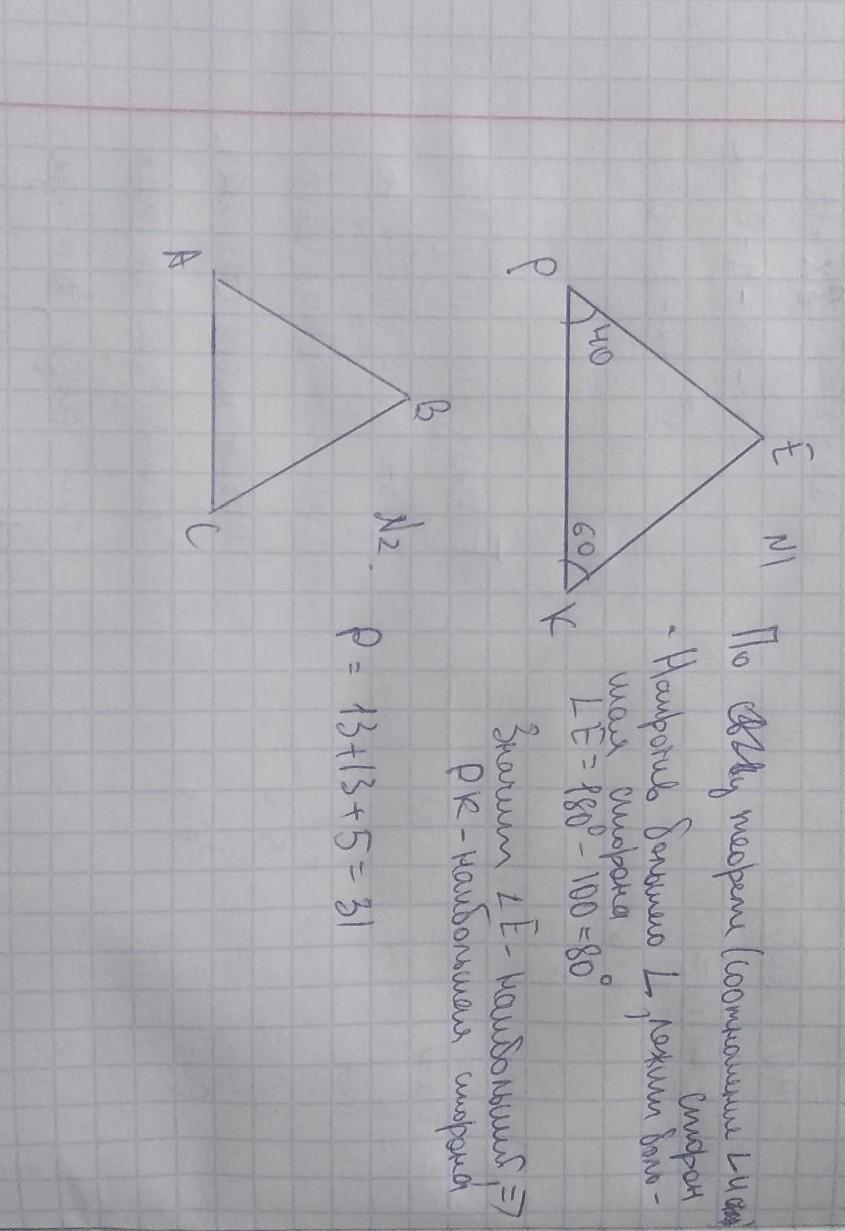 N1
E
P
40
60
K
По теореме (соотношение ∠ и
сторон
- Напротив большего ∠, лежит боль-
шая сторона
∠E = 180° - 100 = 80°
Значит ∠E - наибольший, ⇒
PK - наибольшая сторона
N2.
B
A
C
P = 13 + 13 + 5 = 31